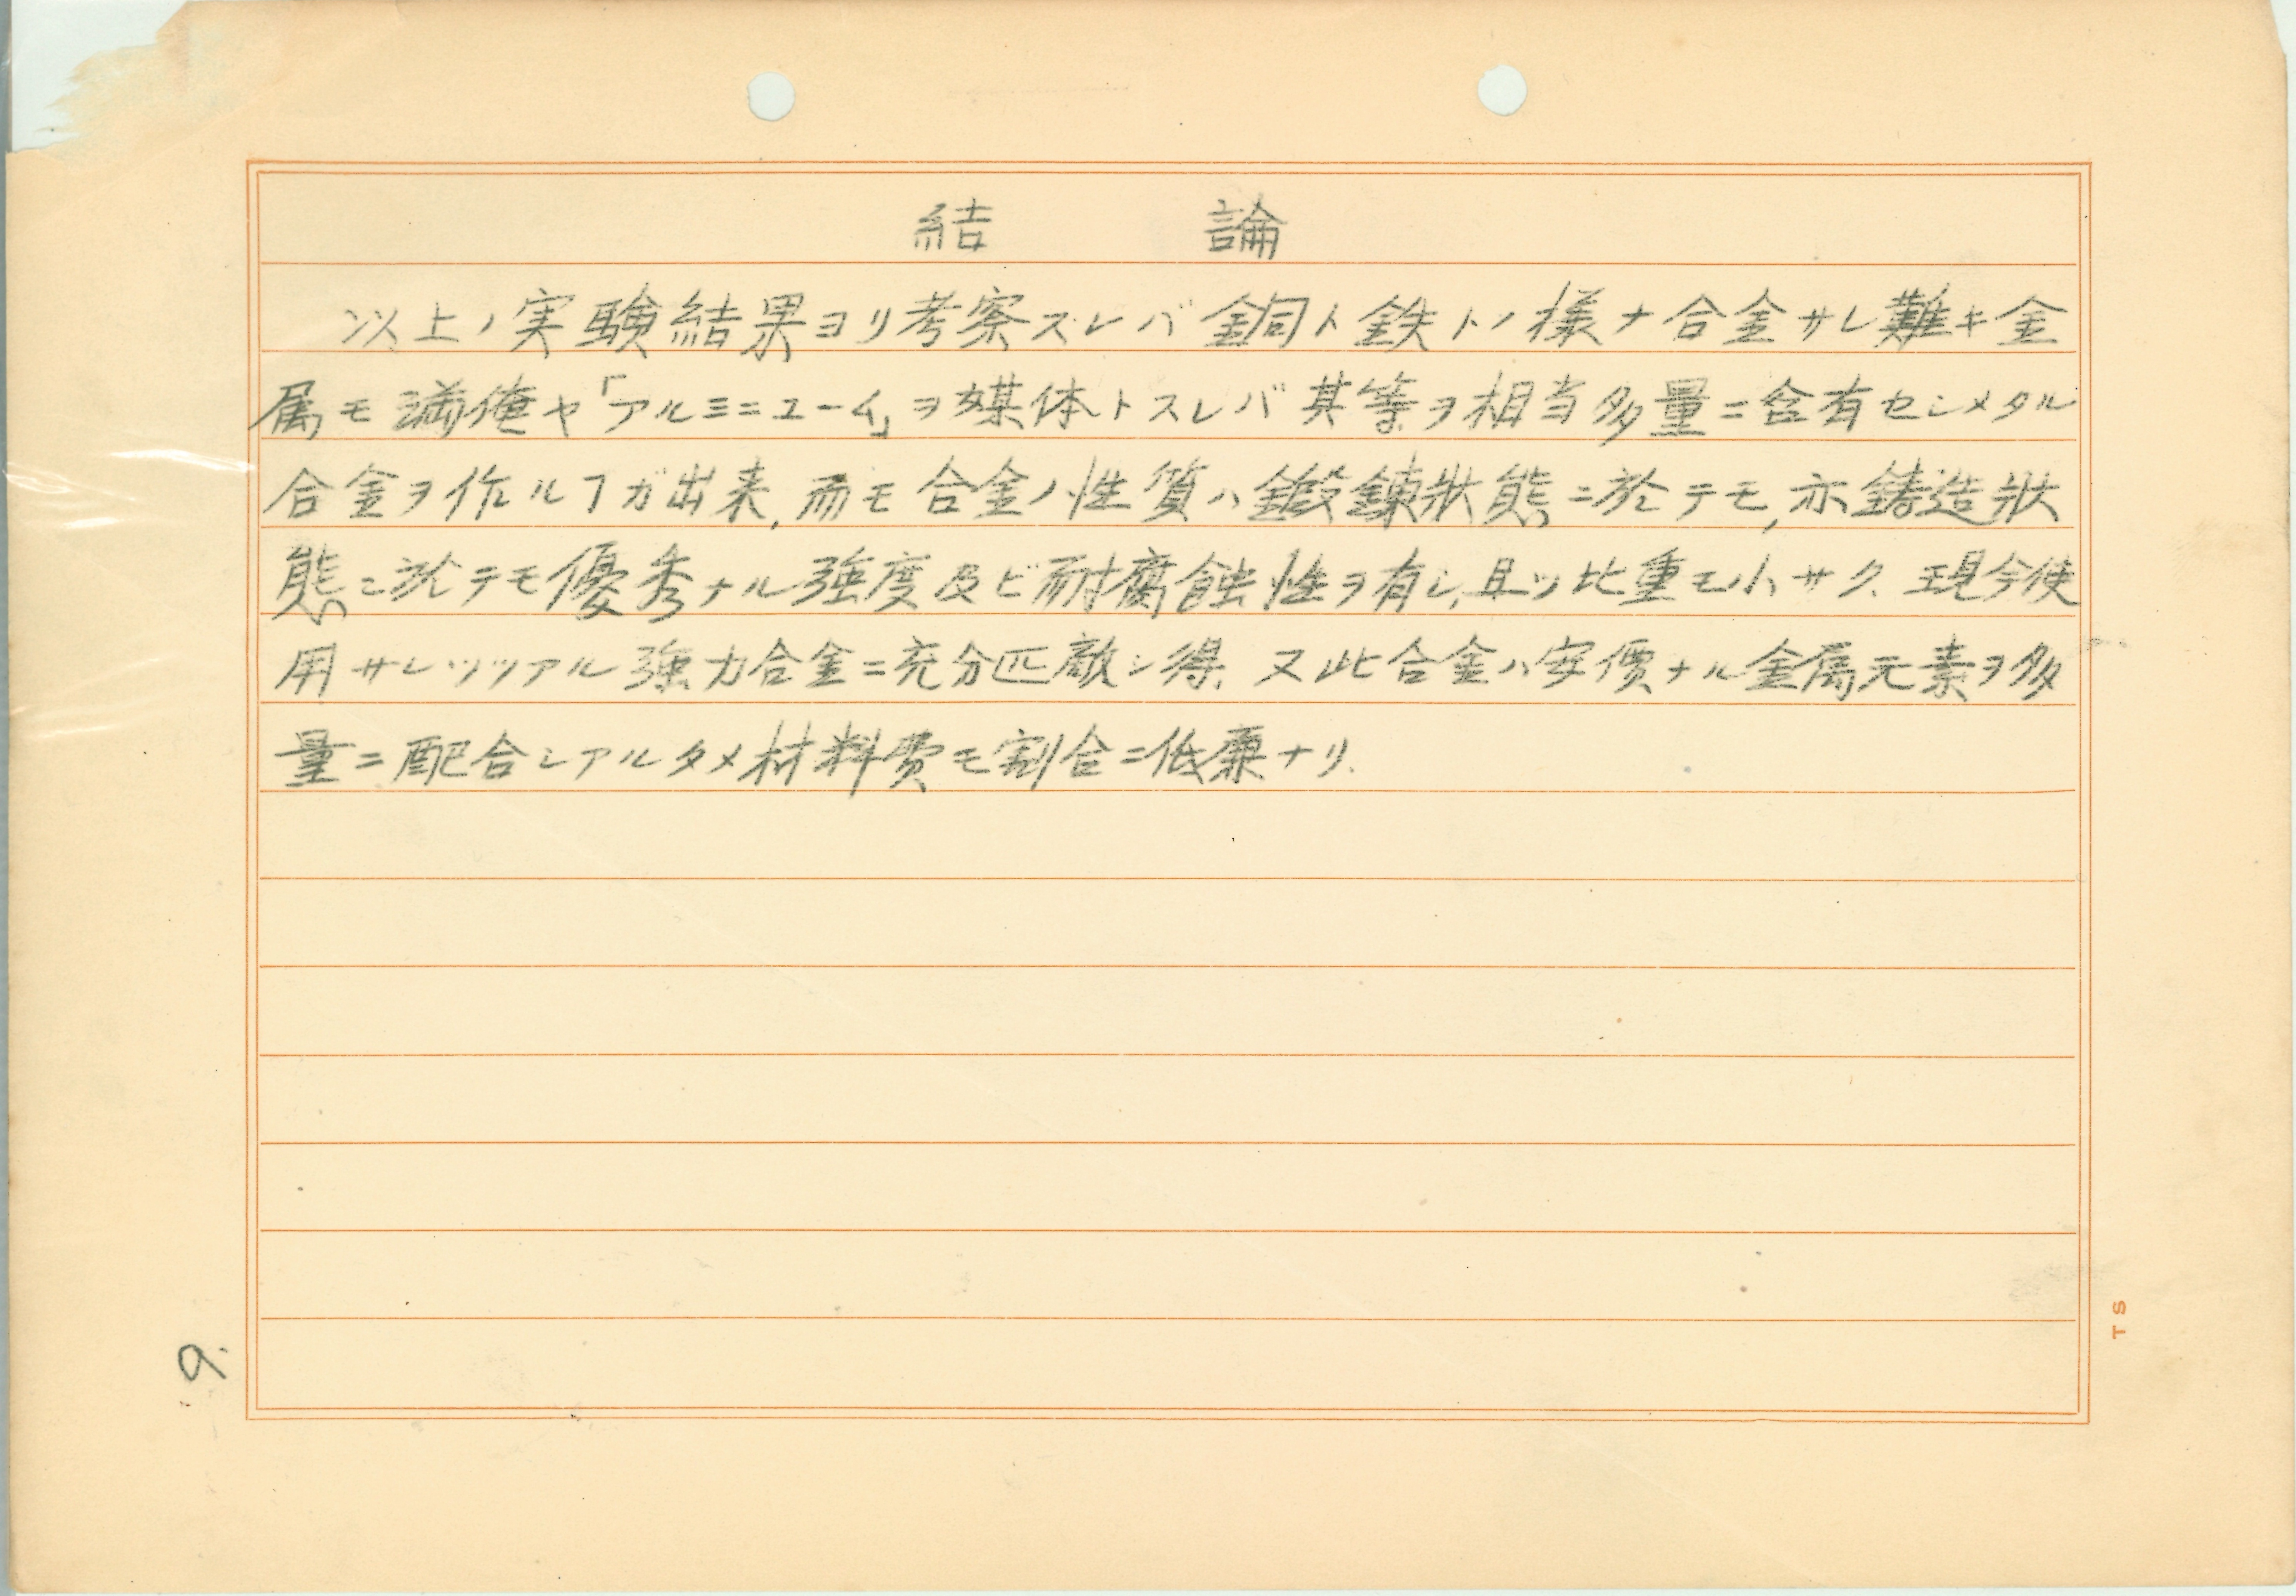 結論
以上ノ実験結果ヨリ考察スレバ銅ト鉄トノ様ナ合金サレ難キ金
属モ満俺ヤ「アルミニューム」ヲ媒体トスレバ其等ヲ相当多量ニ含有セシメタル
合金ヲ作ルヿガ出来,而モ合金ノ性質ハ鍛錬状態ニ於テモ,亦鋳造状
態ニ於テモ優秀ナル強度及ビ耐腐蝕性ヲ有シ,且ツ比重モ小サク、現今使
用サレツツアル強力合金ニ充分匹敵シ得、又此合金ハ安價ナル金属元素ヲ多
量ニ配合シアルタメ材料費モ割合ニ低廉ナリ.
9.
TS